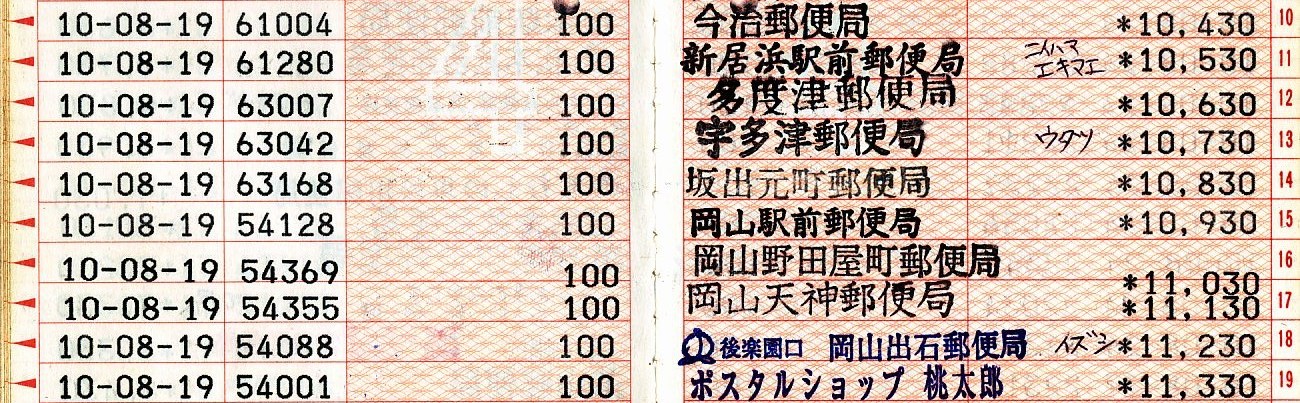 10-08-19 61004 100 今治郵便局 *10,430 10
10-08-19 61280 100 新居浜駅前郵便局 ニイハマ エキマエ *10,530 11
10-08-19 63007 100 多度津郵便局 *10,630 12
10-08-19 63042 100 宇多津郵便局 ウタヅ *10,730 13
10-08-19 63168 100 坂出元町郵便局 *10,830 14
10-08-19 54128 100 岡山駅前郵便局 *10,930 15
10-08-19 54369 100 岡山野田屋町郵便局 *11,030 16
10-08-19 54355 100 岡山天神郵便局 *11,130 17
10-08-19 54088 100 後楽園口 岡山出石郵便局 イズシ *11,230 18
10-08-19 54001 100 ポスタルショップ 桃太郎 *11,330 19